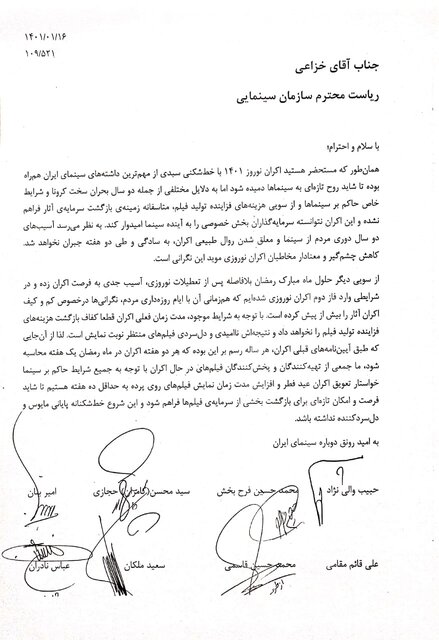 ۱۴۰۱/۰۱/۱۶
۱۰۹/۵۲۱
جناب آقای خزاعی
ریاست محترم سازمان سینمایی
با سلام و احترام؛
همان‌طور که مستحضر هستید اکران نوروز ۱۴۰۱ با خط‌شکنی سبدی از مهم‌ترین داشته‌های سینمای ایران همراه
بوده تا شاید روح تازه‌ای به سینماها دمیده شود اما به دلایل مختلفی از جمله دو سال بحران سخت کرونا و شرایط
خاص حاکم بر سینماها و از سویی هزینه‌های فزاینده تولید فیلم، متاسفانه زمینه‌ی بازگشت سرمایه‌ی آثار فراهم
نشده و این اکران نتوانسته سرمایه‌گذاران بخش خصوصی را به آینده سینما امیدوار کند. به نظر می‌رسد آسیب‌های
دو سال دوری مردم از سینما و معلق شدن روال طبیعی اکران، به سادگی و طی دو هفته جبران نخواهد شد.
کاهش چشم‌گیر و معنادار مخاطبان اکران نوروزی موید این نگرانی است.
از سویی دیگر حلول ماه مبارک رمضان بلافاصله پس از تعطیلات نوروزی، آسیب جدی به فرصت اکران زده و در
شرایطی وارد فاز دوم اکران نوروزی شده‌ایم که همزمانی آن با ایام روزه‌داری مردم، نگرانی‌ها درخصوص کم و کیف
اکران آثار را بیش از پیش کرده است. با توجه به شرایط موجود، مدت زمان فعلی اکران قطعا کفاف بازگشت هزینه‌های
فزاینده تولید فیلم را نخواهد داد و نتیجه‌اش ناامیدی و دل‌سردی فیلم‌های منتظر نوبت نمایش است. لذا از آن‌جایی
که طبق آیین‌نامه‌های قبلی اکران، هر ساله رسم بر این بوده که هر دو هفته اکران در ماه رمضان یک هفته محاسبه
شود، ما جمعی از تهیه‌کنندگان و پخش‌کنندگان فیلم‌های در حال اکران با توجه به جمیع شرایط حاکم بر سینما
خواستار تعویق اکران عید فطر و افزایش مدت زمان نمایش فیلم‌های روی پرده به حداقل ده هفته هستیم تا شاید
فرصت و امکان تازه‌ای برای بازگشت بخشی از سرمایه‌ی فیلم‌ها فراهم شود و این شروع خط‌شکنانه پایانی مایوس و
دل‌سردکننده نداشته باشد.
به امید رونق دوباره سینمای ایران
حبیب والی نژاد محمد حسین فرح بخش سید محسن (کامران) حجازی امیر بنان
علی قائم مقامی محمد حسین قاسمی سعید ملکان عباس نادران